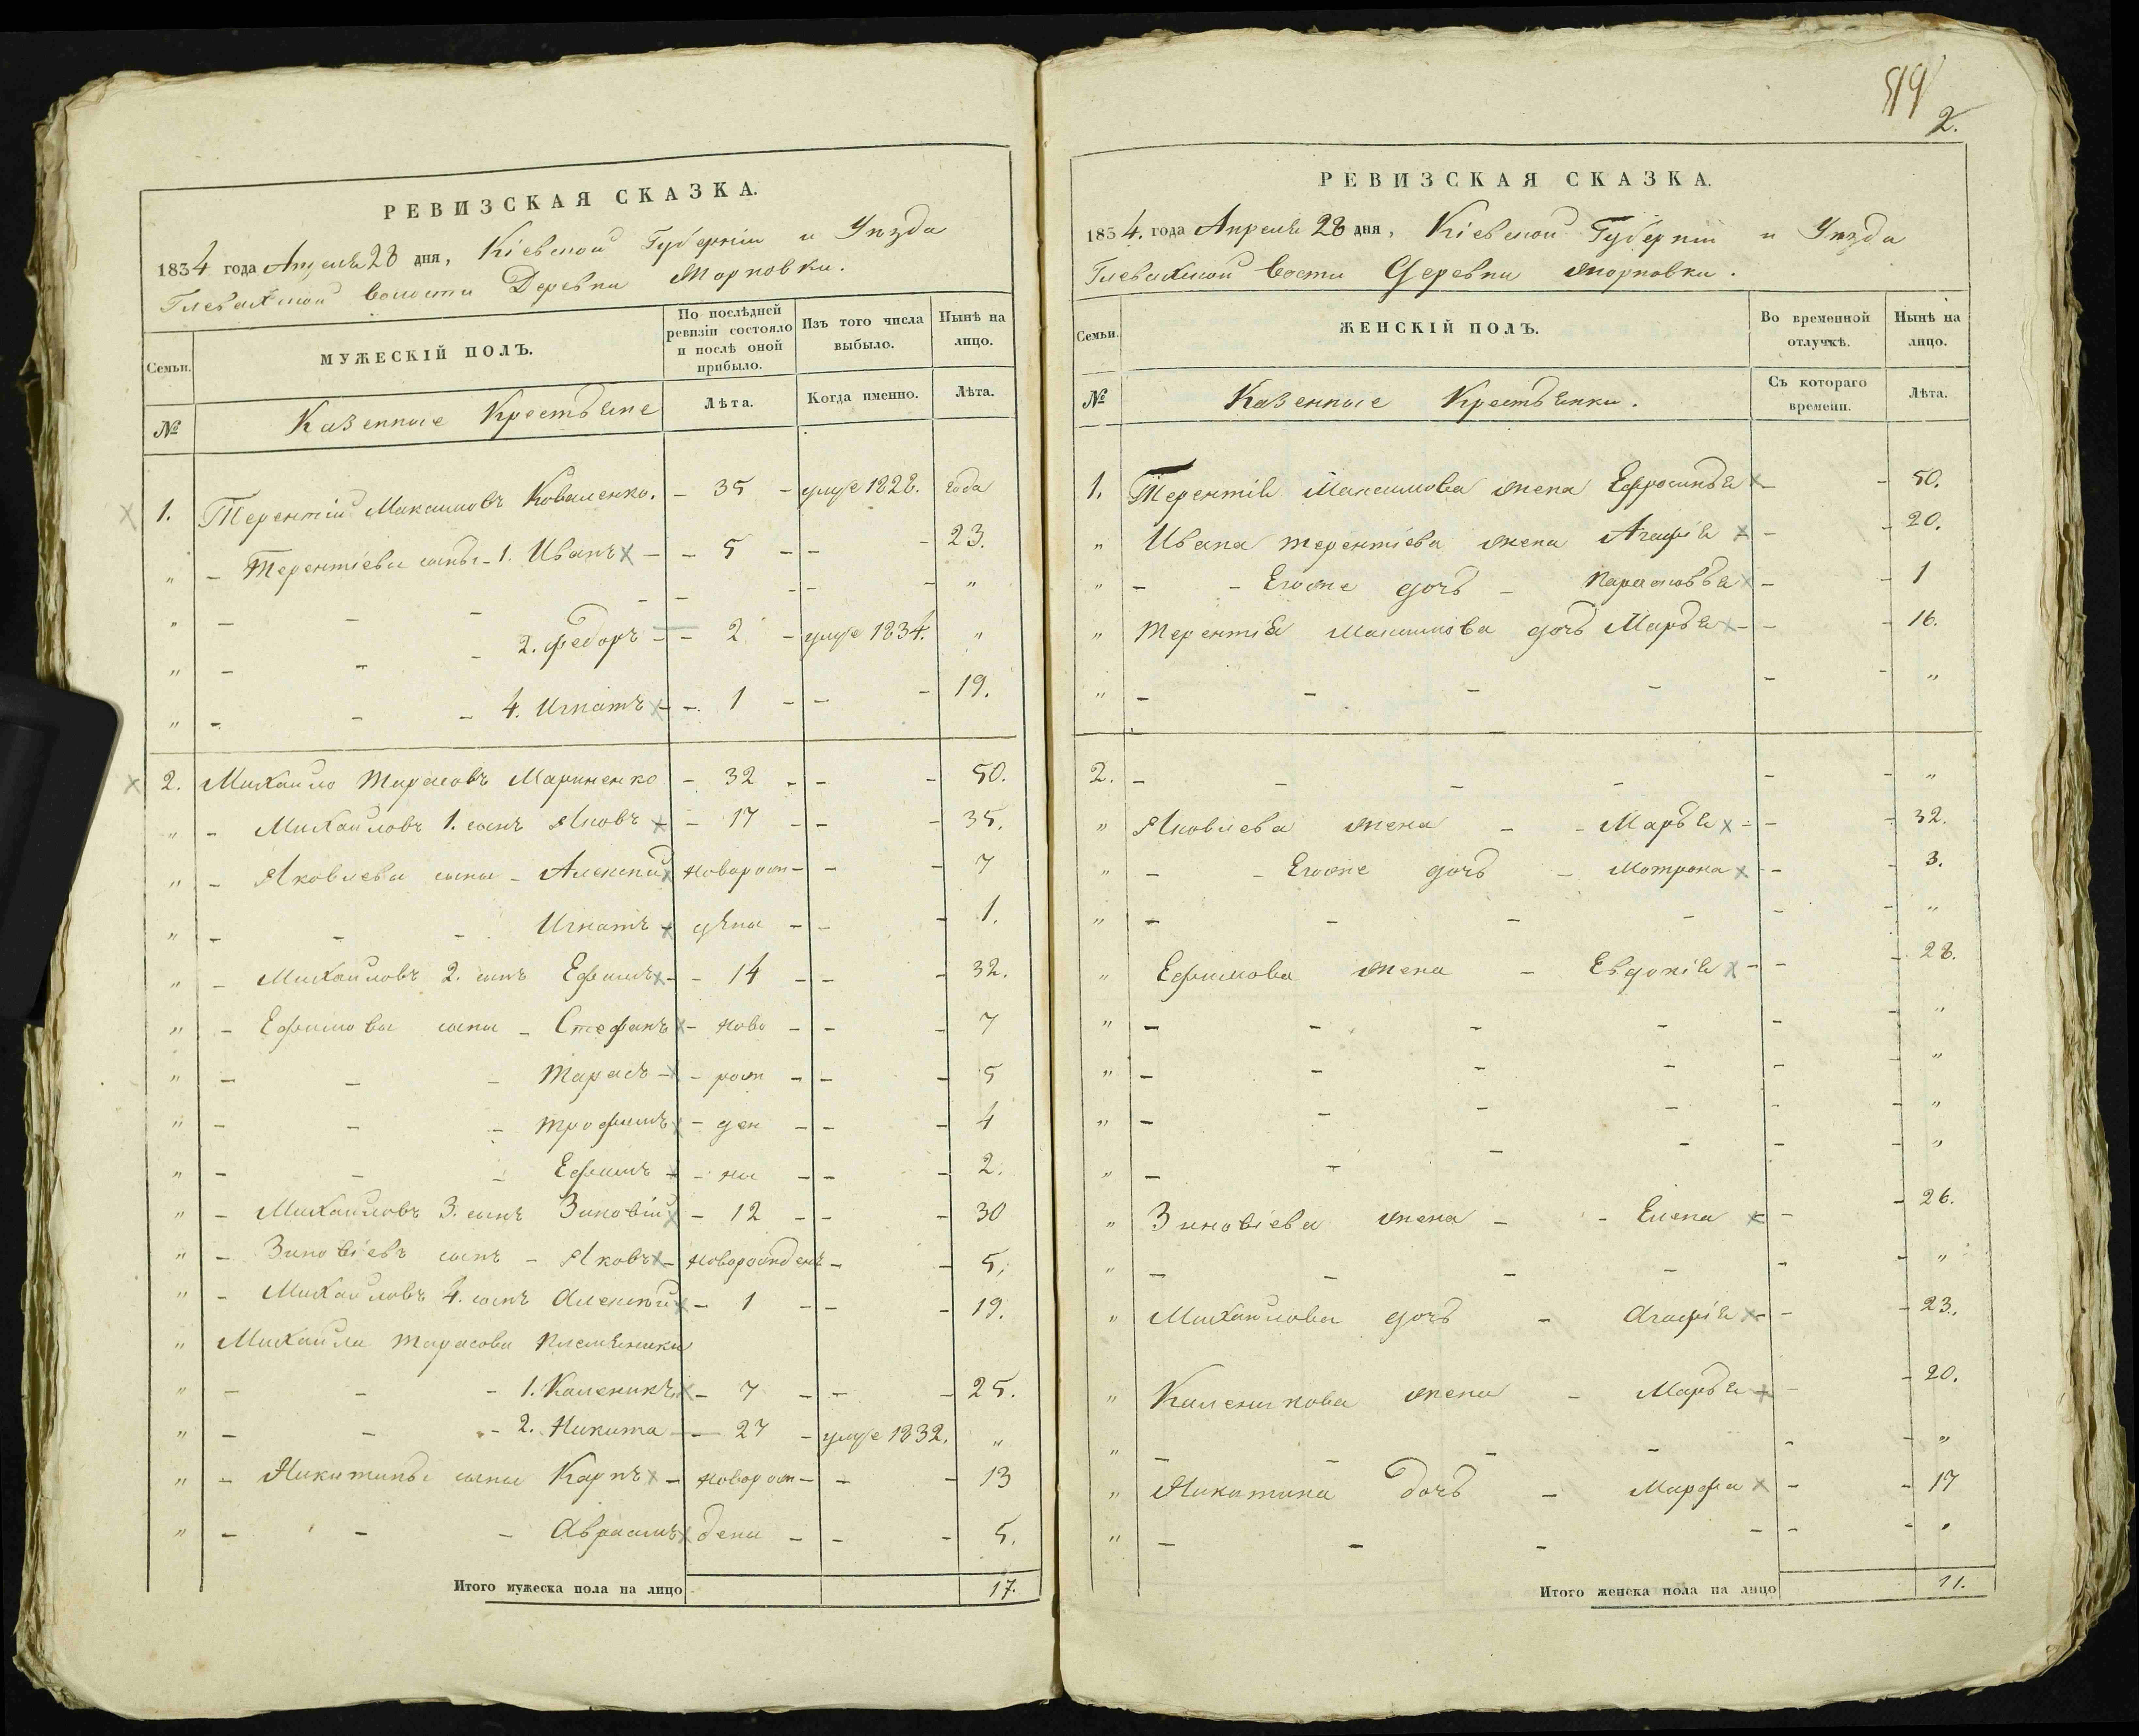 РЕВИЗСКАЯ СКАЗКА.
1834 года Апреля 28 дня, Кіевской Губерніи и Уѣзда
Глевахской волости Деревни
Семьи.
МУЖЕСКІЙ ПОЛЪ.
По послѣдней ревизіи состояло и послѣ оной прибыло.
Изъ того числа выбыло.
Нынѣ на лицо.
№
Казенные Крестьяне
Лѣта.
Когда именно.
Лѣта.
1. Терентій Максимовъ Коваленко. - 35 - умре 1828. года
" - Терентіевы сыны - 1. Иванъ - - 5 - - - 23.
" - - - - - - - - "
" - - - 2. Федоръ - - 2 - умре 1834. "
" - - - 4. Игнатъ - - 1 - - - 19.
2. Михайло Тарасовъ Мариненко - 32 - - - 50.
" - Михайловъ 1. сынъ Яковъ - - 17 - - - 35.
" - Яковлевы сыны - Алексѣй новорож - - - 7
" - - - Игнатъ - дены - - - 1.
" - Михайловъ 2. сынъ Ефимъ - - 14 - - - 32.
" - Ефимовы сыны - Стефанъ - ново - - - 7
" - - - Тарасъ - - рож - - - 5
" - - - Трофимъ - ден - - - 4
" - - - Ефимъ - - ны - - - 2.
" - Михайловъ 3. сынъ Зиновій - 12 - - - 30
" - Зиновіевъ сынъ - Яковъ - новорожденъ - - 5.
" - Михайловъ 4. сынъ Алексѣй - 1 - - - 19.
" Михайла Тарасова племянники
" - - - 1. Каленикъ - 7 - - - 25.
" - - - 2. Никита - - 27 - умре 1832. "
" - Никитины сыны Карпъ - новорож - - - 13
" - - - Авраамъ дены - - - 5.
Итого мужеска пола на лицо 17.
2.
РЕВИЗСКАЯ СКАЗКА.
1834. года Апреля 28 дня, Кіевской Губерніи и Уѣзда
Глевахской вости Деревни
Семьи.
ЖЕНСКІЙ ПОЛЪ.
Во временной отлучкѣ.
Нынѣ на лицо.
№
Казенные Крестьянки.
Съ котораго времени.
Лѣта.
1. Терентія Максимова жена Ефросинья - - 50.
" Ивана Терентіева жена Агафія - - 20.
" - - Егоже дочь - Парасковья - - 1
" Терентія Максимова дочь Марья - - - 16.
" - - - - - - "
2. - - - - - - "
" Яковлева жена - - Марья - - - 32.
" - - Егоже дочь - Мотрона - - - 3.
" - - - - - - "
" Ефимова жена - Евдокія - - - 28.
" - - - - - - "
" - - - - - - "
" - - - - - - "
" - - - - - - "
" Зиновіева жена - - Елена - - 26.
" - - - - - - "
" Михайлова дочь - Агафія - - - 23.
" Каленикова жена - Марья - - - 20.
" - - - - - - "
" Никитина дочь - Марфа - - 17
" - - - - - - "
Итого женска пола на лицо 11.